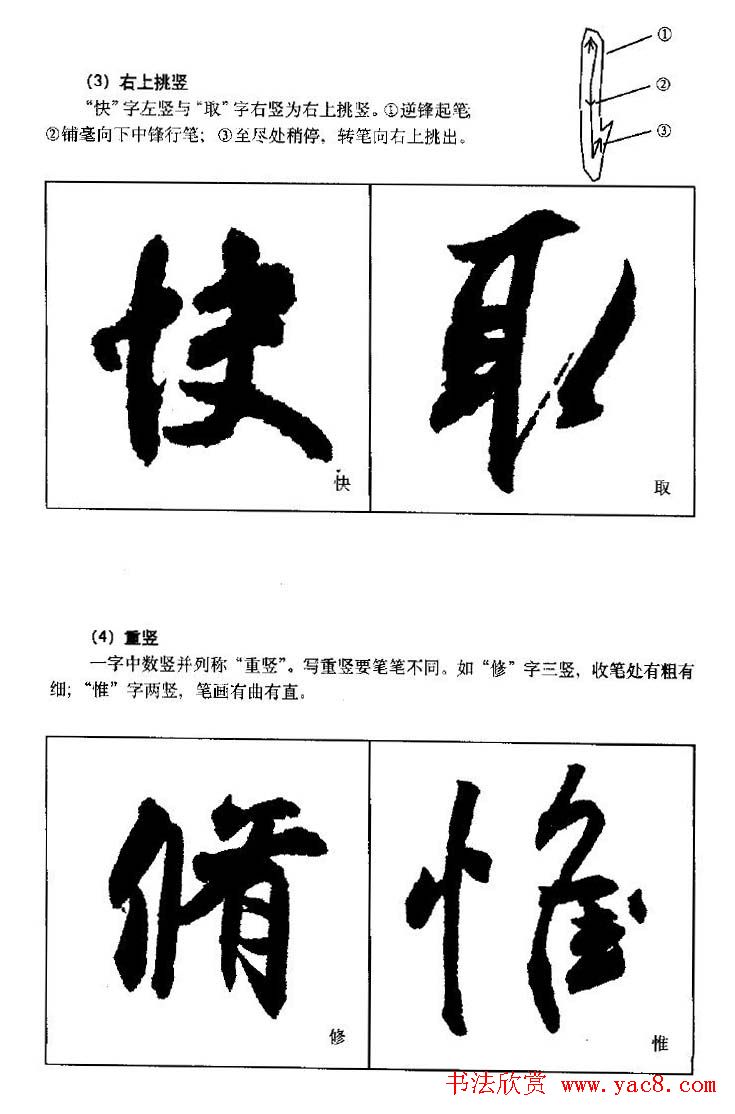 ①
(3) 右上挑竖
②
“快”字左竖与“取”字右竖为右上挑竖。①逆锋起笔
②铺毫向下中锋行笔；③至尽处稍停，转笔向右上挑出。
③
快 取
快
取
(4) 重竖
一字中数竖并列称“重竖”。写重竖要笔笔不同。如“修”字三竖，收笔处有粗有
细；“惟”字两竖，笔画有曲有直。
脩 惟
修
惟
书法欣赏 www.yac8.com